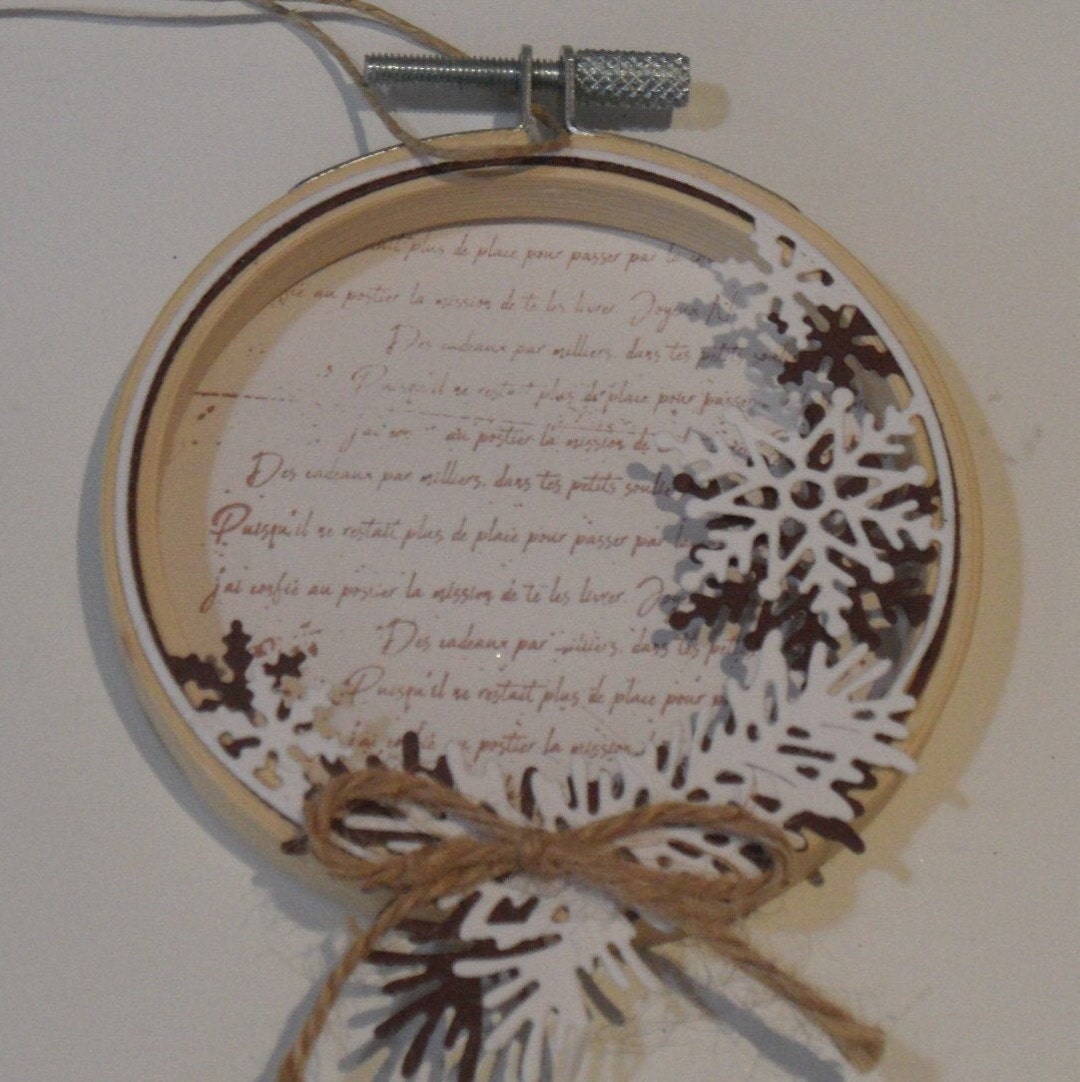 plus de place pour passer par le
au postier la mission de te les livrer. Joyeux
Des cadeaux par milliers, dans tes petits
Puisqu'il ne restait plus de place pour passer
j'ai au postier la mission de
Des cadeaux par milliers, dans tes petits
Puisqu'il ne restait plus de place pour passer par
j'ai confié au postier la mission de te les livrer.
Des cadeaux par milliers, dans tes
Puisqu'il ne restait plus de place pour
j'ai confié au postier la mission